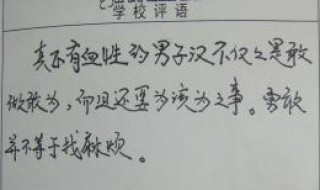 学校评语
真正有血性的男子汉不仅仅是敢
做敢为,而且还要为该为之事。勇敢
并不等于找麻烦。